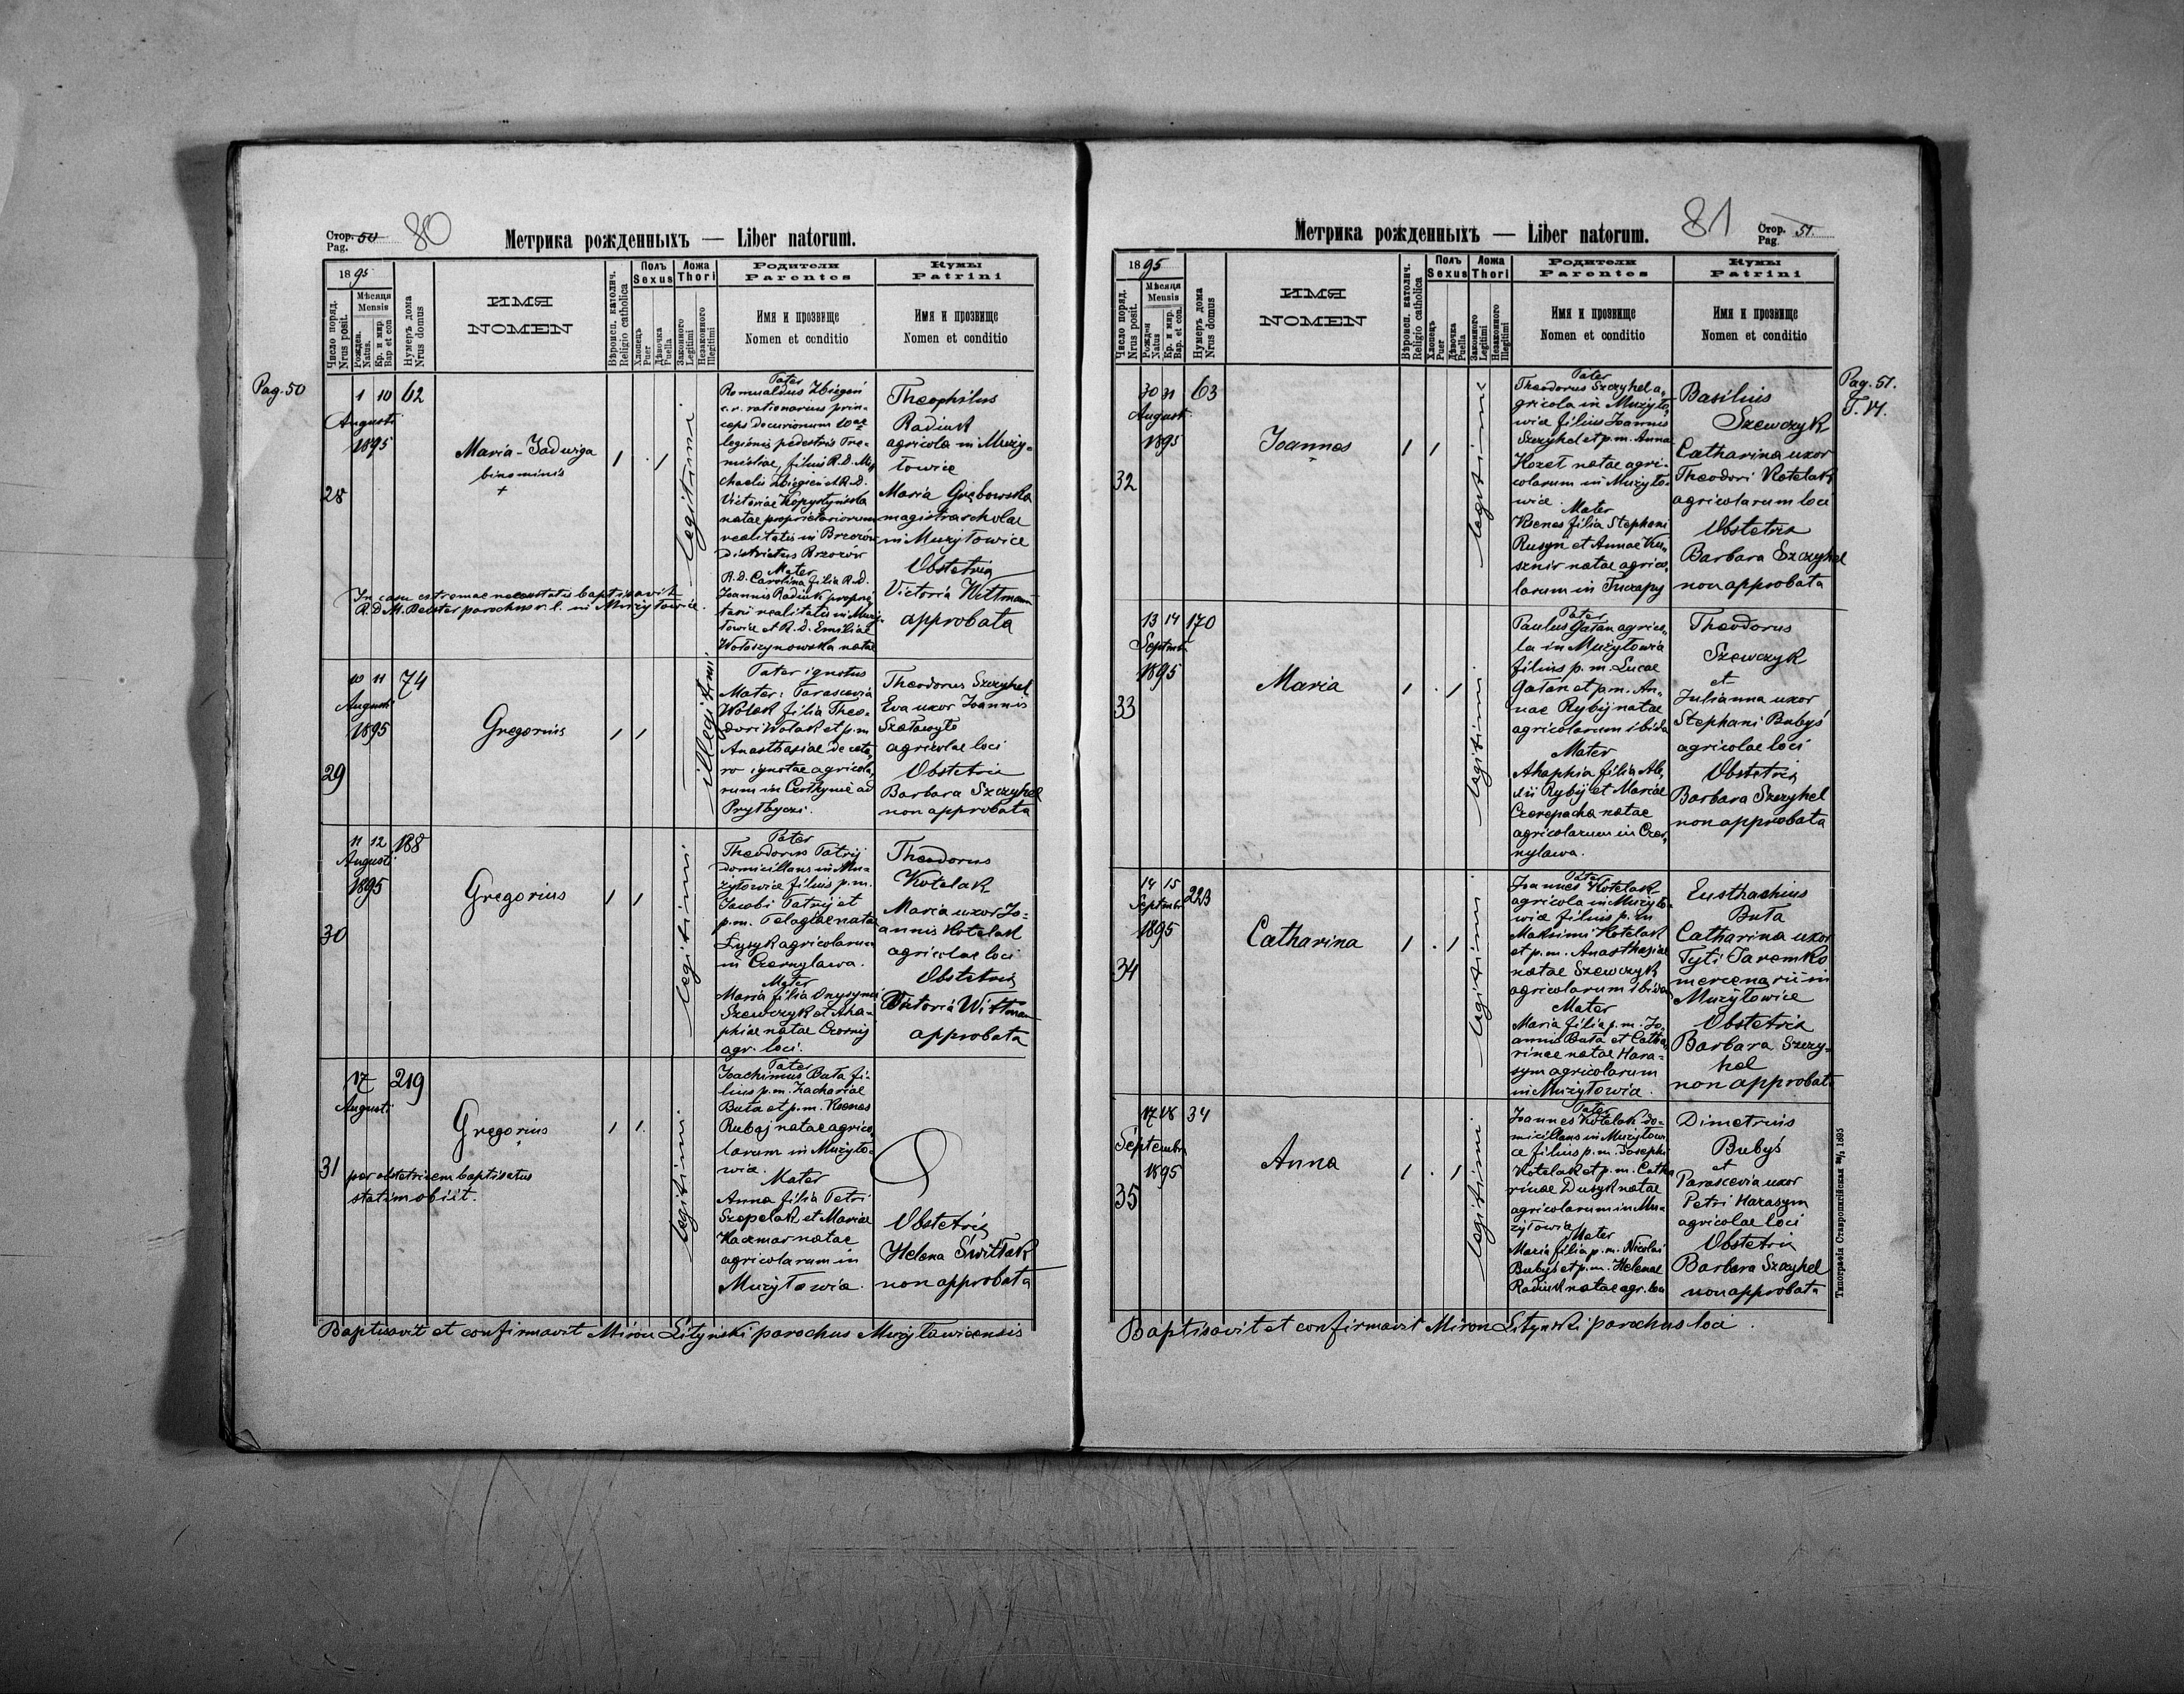 Стор. 50
Pag.
80
Метрика рожденныхъ — Liber natorum.
1895
Число поряд.
Nrus posit.
Мѣсяця
Mensis
Рожден.
Natus.
Кр. и мир.
Bap et con
Нумеръ дома
Nrus domus
ИМЯ
NOMEN
Вѣроисп. католич.
Religio catholica
Полъ
Sexus
Хлопець
Puer
Дѣвочка
Puella
Ложа
Thori
Законного
Legitimi
Незаконного
Illegitimi
Родители
Parentes
Имя и прозвище
Nomen et conditio
Кумы
Patrini
Имя и прозвище
Nomen et conditio
Pag. 50
28
1 10 62
Augusti
1895
Maria-Jadwiga
binominis
+
legitimi
Pater
Romualdus Zbiegień
c.r. rationarius prin-
ceps decurionum 10ae
legionis pedestris Pre-
misliae, filius R.D. Mi-
chaelis Zbiegień et R.D.
Victoriae Kopystyńska
natae proprietariorum
realitatis in Brzozów
districtus Brzozów
Mater
R.d. Carolina filia R.d.
Joannis Radiuk proprie
tarii realitatis in Muży-
łowice et R.d. Emiliae
Wołoszynowska natae
Theophilus
Radiuk
agricola in Muży-
łowice
Maria Grębowska
magistra scholae
in Mużyłowice
Obstetrix
Victoria Wittmann
approbata
In casu extremae necessitatis baptisavit
R.d M. parochus r.l. in Mużyłowice.
29
10 11 74
Augusti
1895
Gregorius
illegitimi
Pater ignotus
Mater: Parascevia
Wolak filia Theo-
dori Wolak et p.m.
Anasthasiae de cete-
ro ignotae agricola-
rum in ad
Prytbyczi.
Theodorus Szczyhel
Eva uxor Joannis
agricolae loci
Obstetrix
Barbara Szczyhel
non approbata
30
11 12 188
Augusti
1895
Gregorius
legitimi
Pater
Theodorus Patrij
domicillans in Mu-
żyłowice filius p.m.
Jacobi Patrij et
p.m. Pelagiae natae
Łysyk agricolarum
in Czernylawa.
Mater
Maria filia Onysymi
Szewczyk et Aha-
phiae natae Czornij
agr. loci.
Theodorus
Kotelak
Maria uxor Jo-
annis Kotelak
agricolae loci
Obstetrix
Victoria Wittman
approbata
31
17 219
Augusti
Gregorius
per obstetricem baptisatus
statim obiit.
legitimi
Pater
Joachimus Buta fi-
lius p.m. Zachariae
Buta et p.m. Ksenes
Rubaj natae agrico-
larum in Mużyło-
wice.
Mater
Anna filia Petri
Szepelak et Mariae
Kaczmar natae
agricolarum in
Mużyłowice.
Obstetrix
Helena Świtlak
non approbata
Baptisavit et confirmavit Miron Lityński parochus Mużyłowicensis
81
Стор. 51.
Pag.
Метрика рожденныхъ — Liber natorum.
1895
Число поряд.
Nrus posit.
Мѣсяця
Mensis
Рожден
Natus
Кр. и мир.
Bap. et con.
Нумеръ дома
Nrus domus
ИМЯ
NOMEN
Вѣроисп. католич.
Religio catholica
Полъ
Sexus
Хлопець
Puer
Дѣвочка
Puella
Ложа
Thori
Законного
Legitimi
Незаконного
Illegitimi
Родители
Parentes
Имя и прозвище
Nomen et conditio
Кумы
Patrini
Имя и прозвище
Nomen et conditio
Pag. 51.
T. VI.
32
30 31 63
August
1895
Joannes
legitimi
Pater
Theodorus Szczyhel a-
gricola in Mużyło-
wice filius Joannis
Szczyhel et p.m. Anna
Kozet natae agri-
colarum in Mużyło-
wice.
Mater
Ksenes filia Stephani
Rusyn et Annae Ku-
sznir natae agrico-
larum in Tuczapy
Basilius
Szewczyk
Catharina uxor
Theodori Kotelak
agricolarum loci
Obstetrix
Barbara Szczyhel
non approbata
33
13 14 170
Septembr
1895
Maria
legitimi
Pater
Paulus Gałan agrico-
la in Mużyłowice
filius p.m. Lucae
Gałan et p.m. An-
nae Rybij natae
agricolarum ibidem
Mater
Ahaphia filia Ale-
xii Rybij et Mariae
Czerepacha natae
agricolarum in Czer-
nylawa.
Theodorus
Szewczyk
et
Julianna uxor
Stephani Bubyś
agricolae loci
Obstetrix
Barbara Szczyhel
non approbata
34
14 15 223
Septembr
1895
Catharina
legitimi
Pater
Joannes Kotelak
agricola in Mużyło-
wice filius p.m.
Maksimi Kotelak
et p.m. Anasthasiae
natae Szewczyk
agricolarum ibidem
Mater
Maria filia p.m. Jo-
annis Buta et Catha-
rinae natae Hara-
sym agricolarum
in Mużyłowice.
Eusthachius
Buta
Catharina uxor
Tyti Jaremko
mercenarii in
Mużyłowice
Obstetrix
Barbara Szczy-
hel
non approbata
35
17 18 34
Septembr
1895
Anna
legitimi
Pater
Joannes Kotelak do-
micillans in Mużyłowi-
ce filius p.m. Josephi
Kotelak et p.m. Catha
rinae Dusyk natae
agricolarum in Mu-
żyłowice
Mater
Maria filia p.m. Nicolai
Bubyś et p.m. Helenae
Radiuk natae agr. loci
Dimetrius
Bubyś
et
Parascevia uxor
Petri Harasym
agricolae loci
Obstetrix
Barbara Szczyhel
non approbata
Baptisavit et confirmavit Miron Lityński parochus loci.